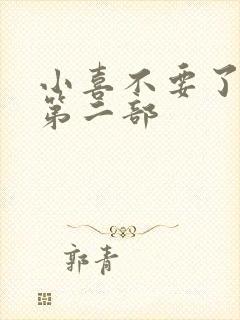 小喜不要了
第二部
郭青